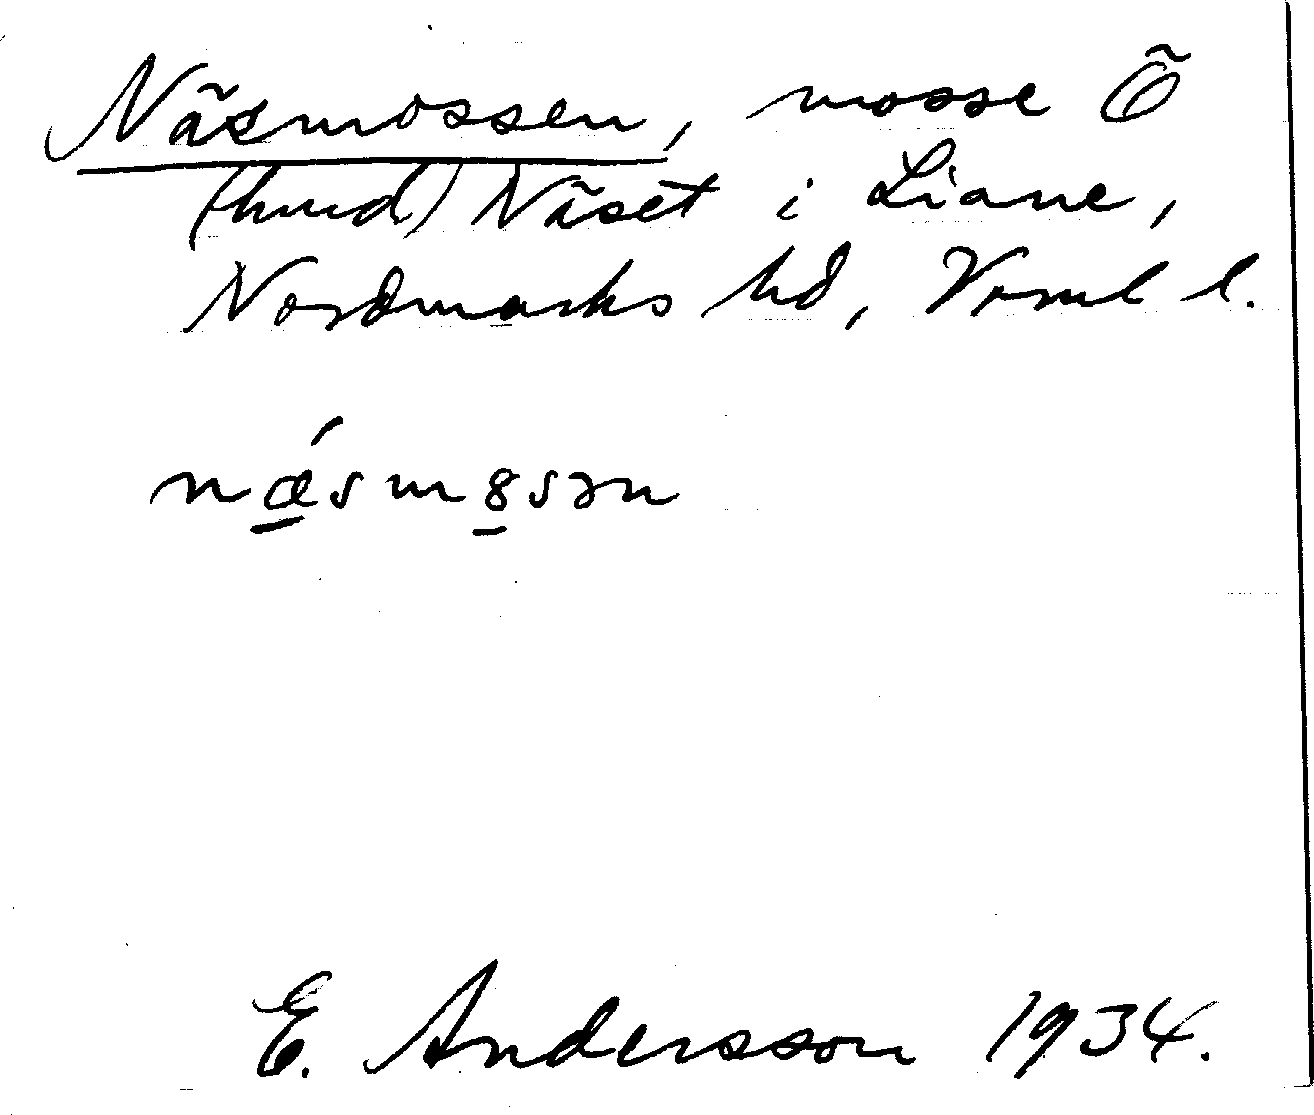 Näsmossen, mosse Ö
(hmd) Näset i Liane,
Nordmarks hd, Vrml l.
nǽ̠smo̠sən
E. Andersson 1934.